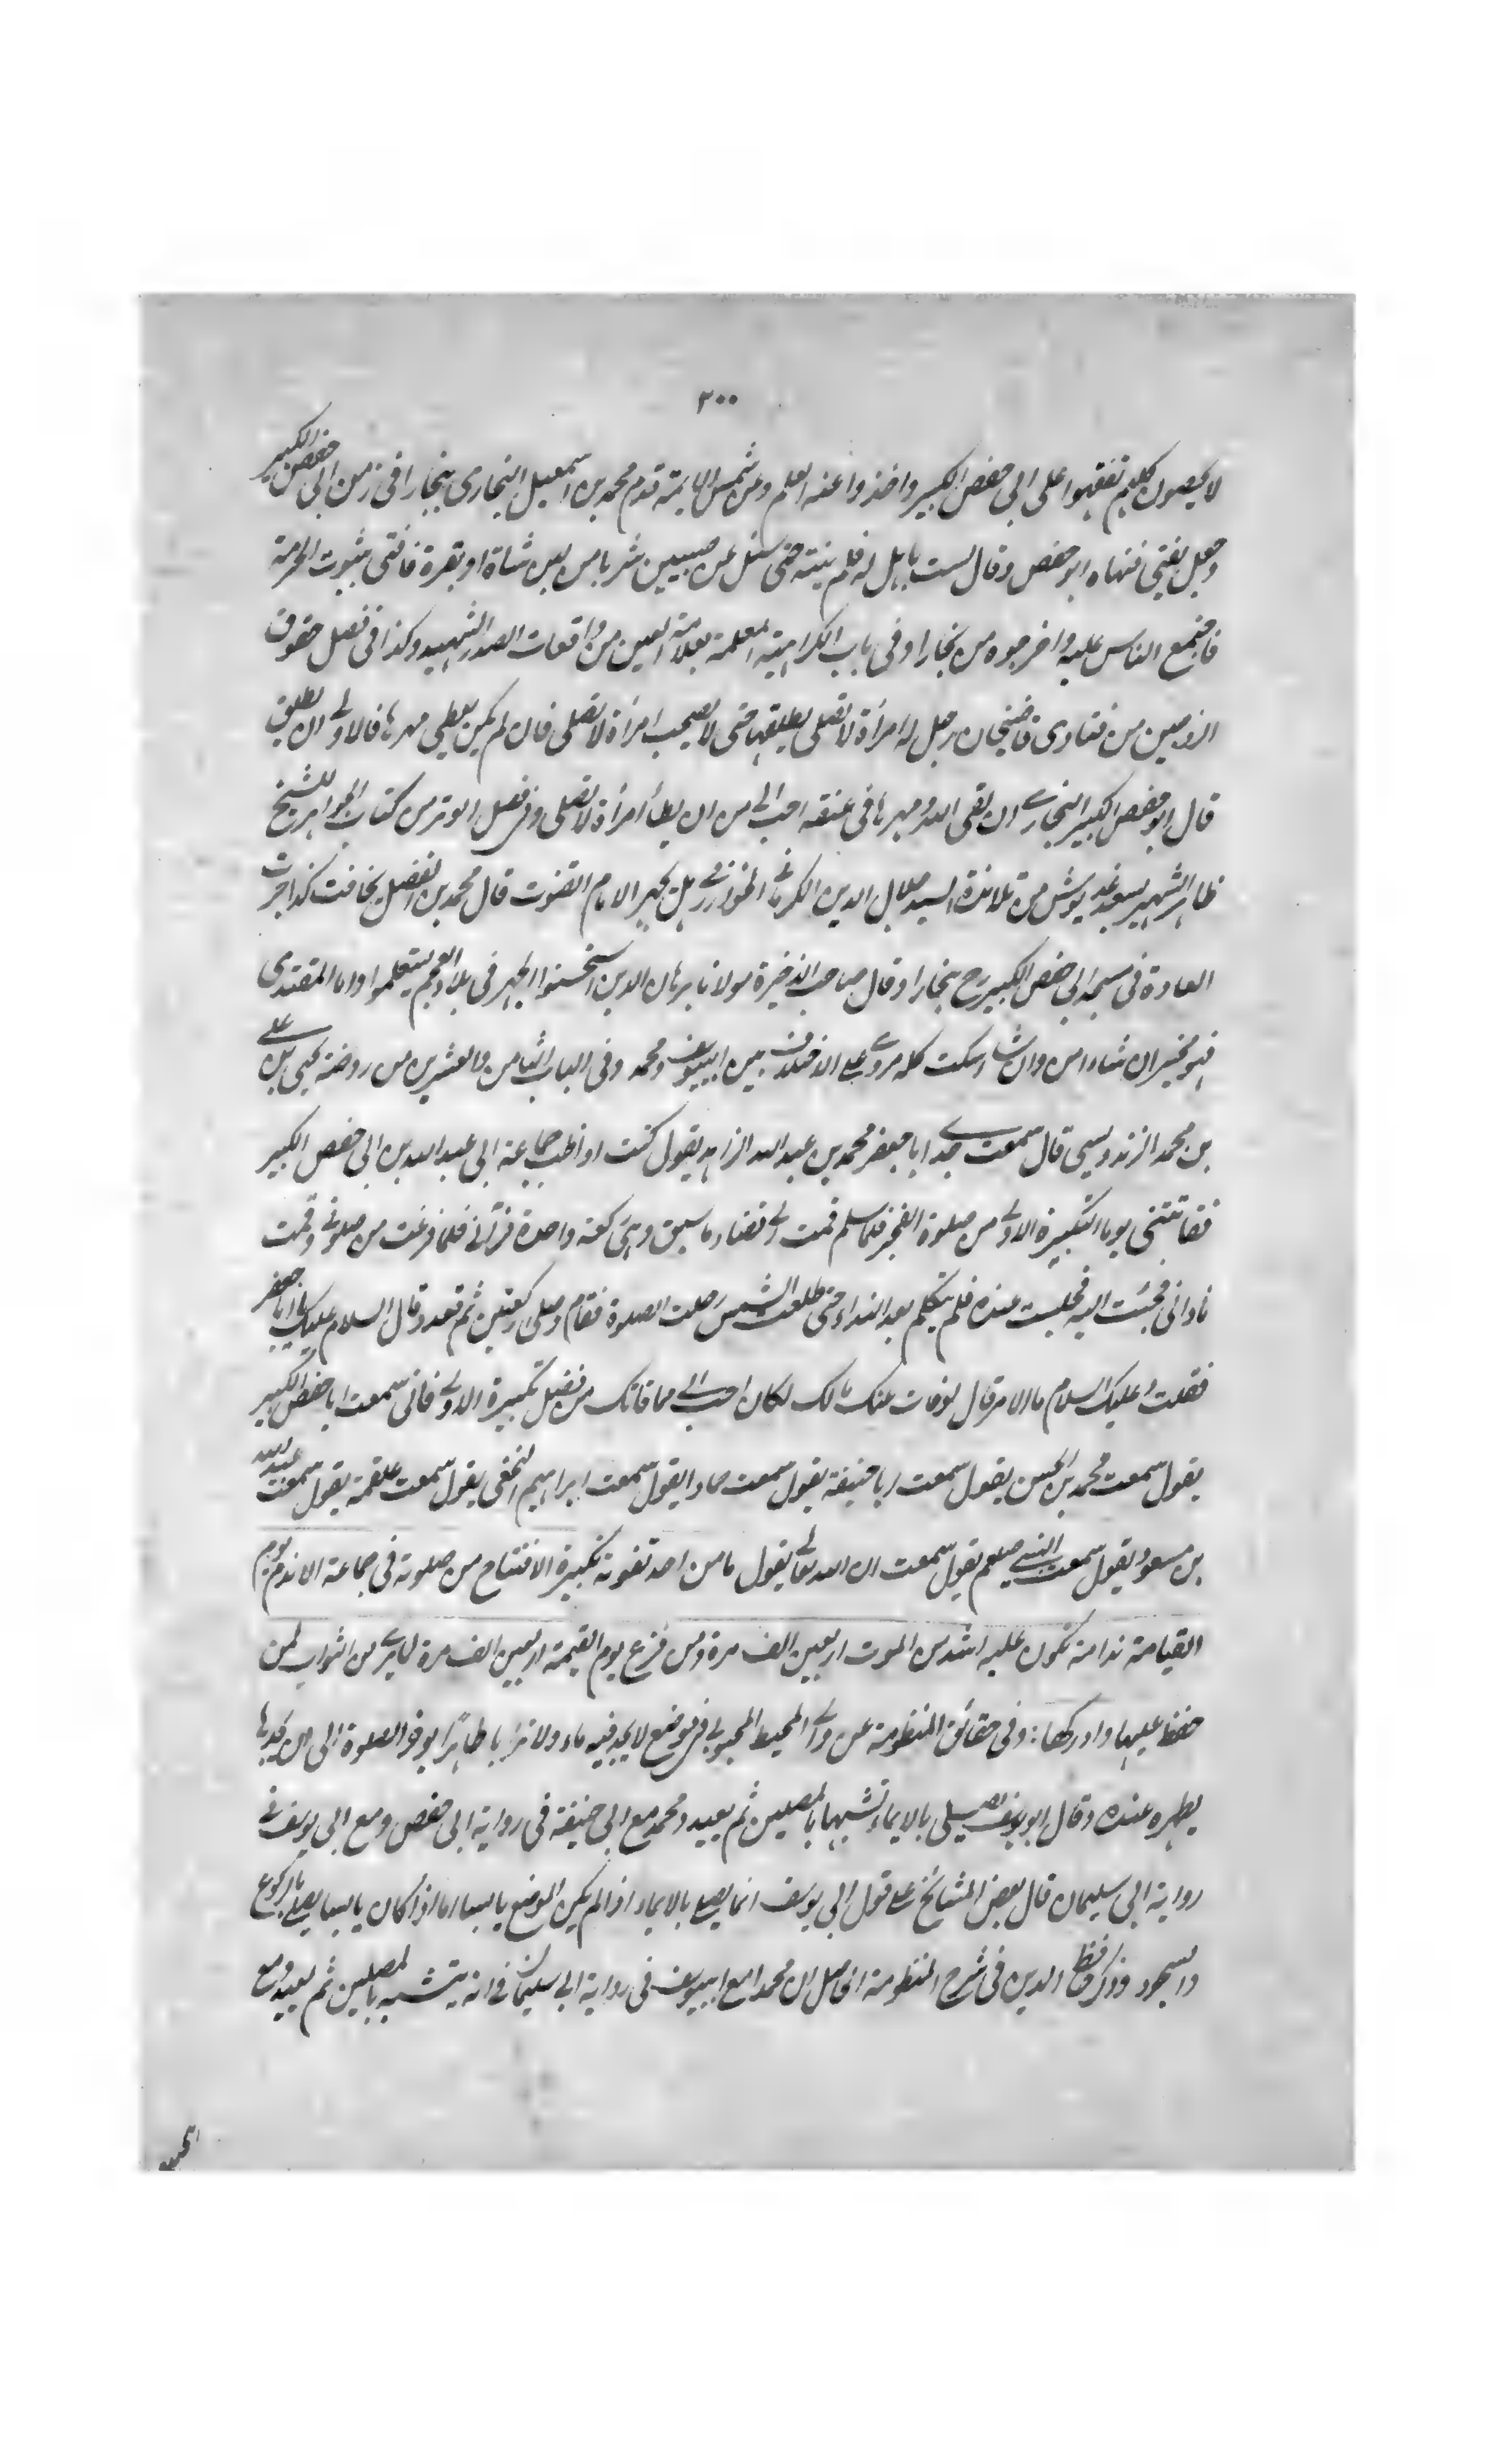 ٣٠٠
لا يحصون كلهم تفقهوا على ابي حفص الكبير واخذوا عنه العلم وعن شمس الائمة قدم محمد بن اسمعيل البخاري بخارا في زمن ابي حفص الكبير
وجعل يفتي فنهاه ابو حفص وقال لست باهل له فلم ينته حتى سئل عن صبيين شربا من لبن شاة او بقرة فافتى بثبوت الحرمة
فاجتمع الناس عليه واخرجوه من بخارا وفي باب الكراهية المعلمة بعلامة العين من واقعات الصدر الشهيد وكذا في فصل حقوق
الزوجين من فتاوى قاضيخان رجل له امرأة لا تصلي يطلقها حتى لا يصحب امرأة لا تصلي فان لم يكن له يعطي مهرها فالاولى ان يطلق
قال ابو حفص الكبير البخاري ان لقي الله ومهرها في عنقه احب الي من ان يطأ امرأة لا تصلي وفي فصل الوتر من كتاب الجواهر للشيخ
طاهر الشهير بسعد غديوش من تلامذة السيد جلال الدين الكرلاني الخوارزمي هل يجهر الامام القنوت قال محمد بن الفضل يخافت كذا جرت
العادة في مسجد ابي حفص الكبير رح بخارا وقال صاحب الذخيرة مولانا برهان الدين استحسنوا الجهر في بلاد العجم ليتعلموا واما المقتدى
فهو مخير ان شاء امن وان شاء سكت كله مروى على الاختلاف بين ابييوسف ومحمد وفي الباب الثامن والعشرين من روضة يحيى بن على
بن محمد الزندويسى قال سمعت جدى ابا جعفر محمد بن عبد الله الزاهد يقول كنت اواظب جماعة ابي عبد الله بن ابي حفص الكبير
ففاتتني يوما التكبيرة الاولى من صلوة الفجر فلما سلم قمت الى قضاء ما سبق وهى ركعة واحدة فلما فرغت من صلوتي وقمت
ناداني فجئت اليه فجلست عنده فلم يتكلم بعد النداء حتى طلعت الشمس وحلت الصلوة فقام وصلى ركعتين ثم قعد وقال السلام عليك يا ابا جعفر
فقلت وعليك السلام ما الامر قال لو فات عنك مالك لكان احب الى مما فاتك من فضل تكبيرة الاولى فاني سمعت ابا حفص الكبير
يقول سمعت محمد بن الحسن يقول سمعت ابا حنيفة يقول سمعت حمادا يقول سمعت ابراهيم النخعي يقول سمعت علقمة يقول سمعت عبد الله
بن مسعود يقول سمعت النبي صلعم يقول سمعت ان الله تعالى يقول ما من احد تفوته تكبيرة الافتتاح من صلوته في جماعة الا ندم يوم
القيامة ندامة تكون عليه اشد من الموت اربعين الف مرة ومن فزع يوم القيمة اربعين الف مرة لما يرى من الثواب لمن
حفظ عليها وادركها: وفي حقائق المنظومة عن والى المحيط المحبوبى في موضع لا يجد فيه ماء ولا ترابا طاهرا يوخر الصلوة الى ان يجد ما
يطهره عنده وقال ابو يوسف يصلي بالايماء تشبها بالمصلين ثم يعيد ومحمد مع ابي حنيفة في رواية ابي حفص ومع ابي يوسف في
رواية ابي سليمان قال بعض المشائخ على قول ابي يوسف انما يصلى بالايماء اذا لم يكن الموضع يابسا اما اذا كان يابسا يصلى بالركوع
والسجود وذكر حافظ الدين في شرح المنظومة الحاصل ان محمدا مع ابييوسف في رواية ابي سليمان في انه يتشبه بالمصلين ثم يعيد ومع